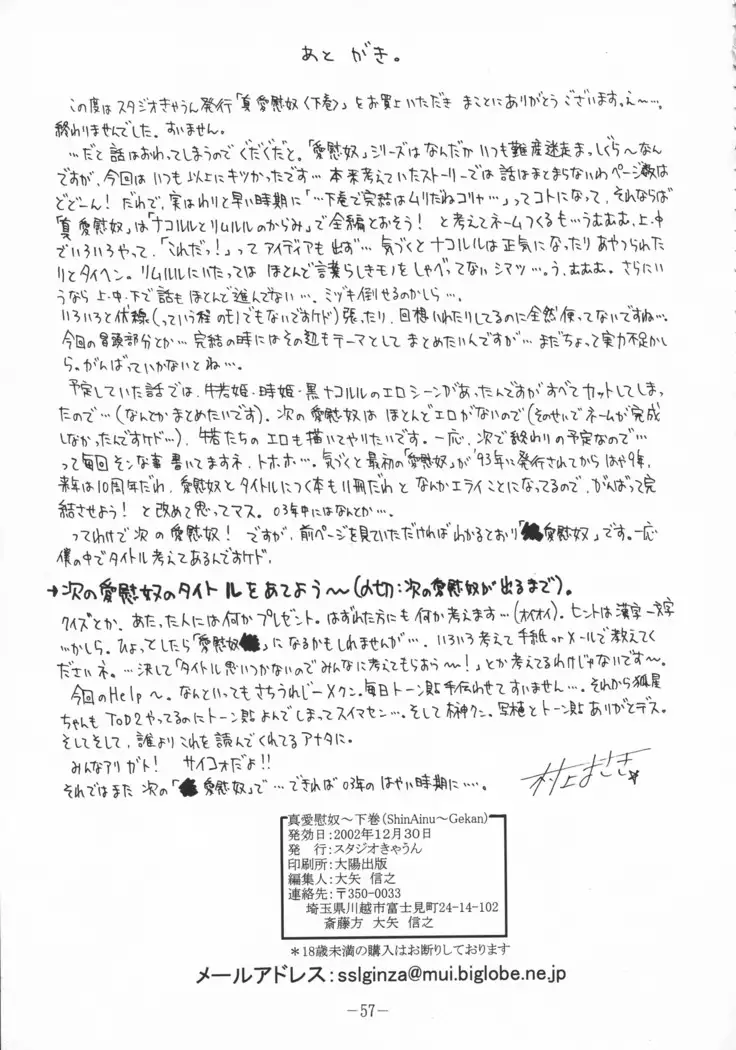 あとがき。
この度はスタジオきゃうん発行「真愛慰奴〈下巻〉」をお買上いただき まことにありがとうございます。え〜…。
終わりませんでした。すいません。
…だと話はおわってしまうのでぐだぐだと。「愛慰奴」シリーズはなんだかいつも難産迷走まっしぐら〜なん
ですが、今回はいつも以上にキツかったです… 本来考えていたストーリーでは話はまとまらないわページ数は
どどーん！だわで、実はわりと早い時期に「…下巻で完結はムリだねコリャ…」ってコトになって、それならば
「真愛慰奴」は「ナコルルとリムルルのからみ」で全編とおそう！ と考えてネームつくるも…うむむむ、上・中
でいろいろやって、「これだっ！」ってアイディアも出ず… 気づくとナコルルは正気になったりあやつられた
りとタイヘン。リムルルにいたっては ほとんど言葉らしきモノをしゃべってないシマツ…。う、むむむ。さらにい
うなら上・中・下で話もほとんど進んでない…。ミヅキ倒せるのかしら…。
いろいろと伏線(っていう程のモノでもないですケド)張ったり、回想いれたりしてるのに全然使ってないですね…。
今回の冒頭部分とか… 完結の時にはその辺もテーマとしてまとめたいんですが… まだちょって実力不足かし
ら。がんばっていかないとね…。
予定していた話では、牛若姫・時姫・黒ナコルルのエロシーンがあったんですがすべてカットしてしまっ
たので…(なんとかまとめたいです)。次の愛慰奴は ほとんどエロがないので(そのせいでネームが完成
しなかったんですケド…)、牛若たちのエロも描いてやりたいです。一応、次で終わりの予定なので…
って毎回そんな事書いてますネ、トホホ…。気づくと最初の「愛慰奴」が'93年に発行されてからはや9年、
来年は10周年だわ、愛慰奴とタイトルにつく本も11冊だわと なんかエライことになってるので、がんばって完
結させよう！と改めて思ってマス。03年中にはなんとか…。
ってわけで次の愛慰奴！ ですが、前ページを見ていただければわかるとおり「愛慰奴」です。一応
僕の中でタイトル考えてあるんですケド、
→次の愛慰奴のタイトルをあてよう〜(〆切：次の愛慰奴が出るまで)。
クイズとか、あたった人には何かプレゼント。はずれた方にも何か考えます…(オイオイ)。ヒントは漢字一文字
…かしら。ひょっとしたら「愛慰奴」になるかもしれませんが…、いろいろ考えて手紙orメールで教えてく
ださいネ。…決して「タイトル思いつかないのでみんなに考えてもらおう〜！」とか考えてるわけじゃないです〜。
今回のHelp〜。なんといってもさちうれじーXクン。毎日トーン貼手伝わせてすいません…。それから狐星
ちゃんもTOD2やってるのにトーン貼よんでしまってスイマセン…。そして榊クン。写植とトーン貼ありがとデス。
そしてそして、誰よりこれを読んでくれてるアナタに。
みんなアリガト！ サイコォだよ！！
それではまた 次の「愛慰奴」で…できれば03年のはやい時期に…。
村上まさき
真愛慰奴～下巻(ShinAinu～Gekan)
発効日：2002年12月30日
発　行：スタジオきゃうん
印刷所：大陽出版
編集人：大矢　信之
連絡先：〒350-0033
埼玉県川越市富士見町24-14-102
斎藤方　大矢　信之
＊18歳未満の購入はお断りしております
メールアドレス：sslginza@mui.biglobe.ne.jp
－57－